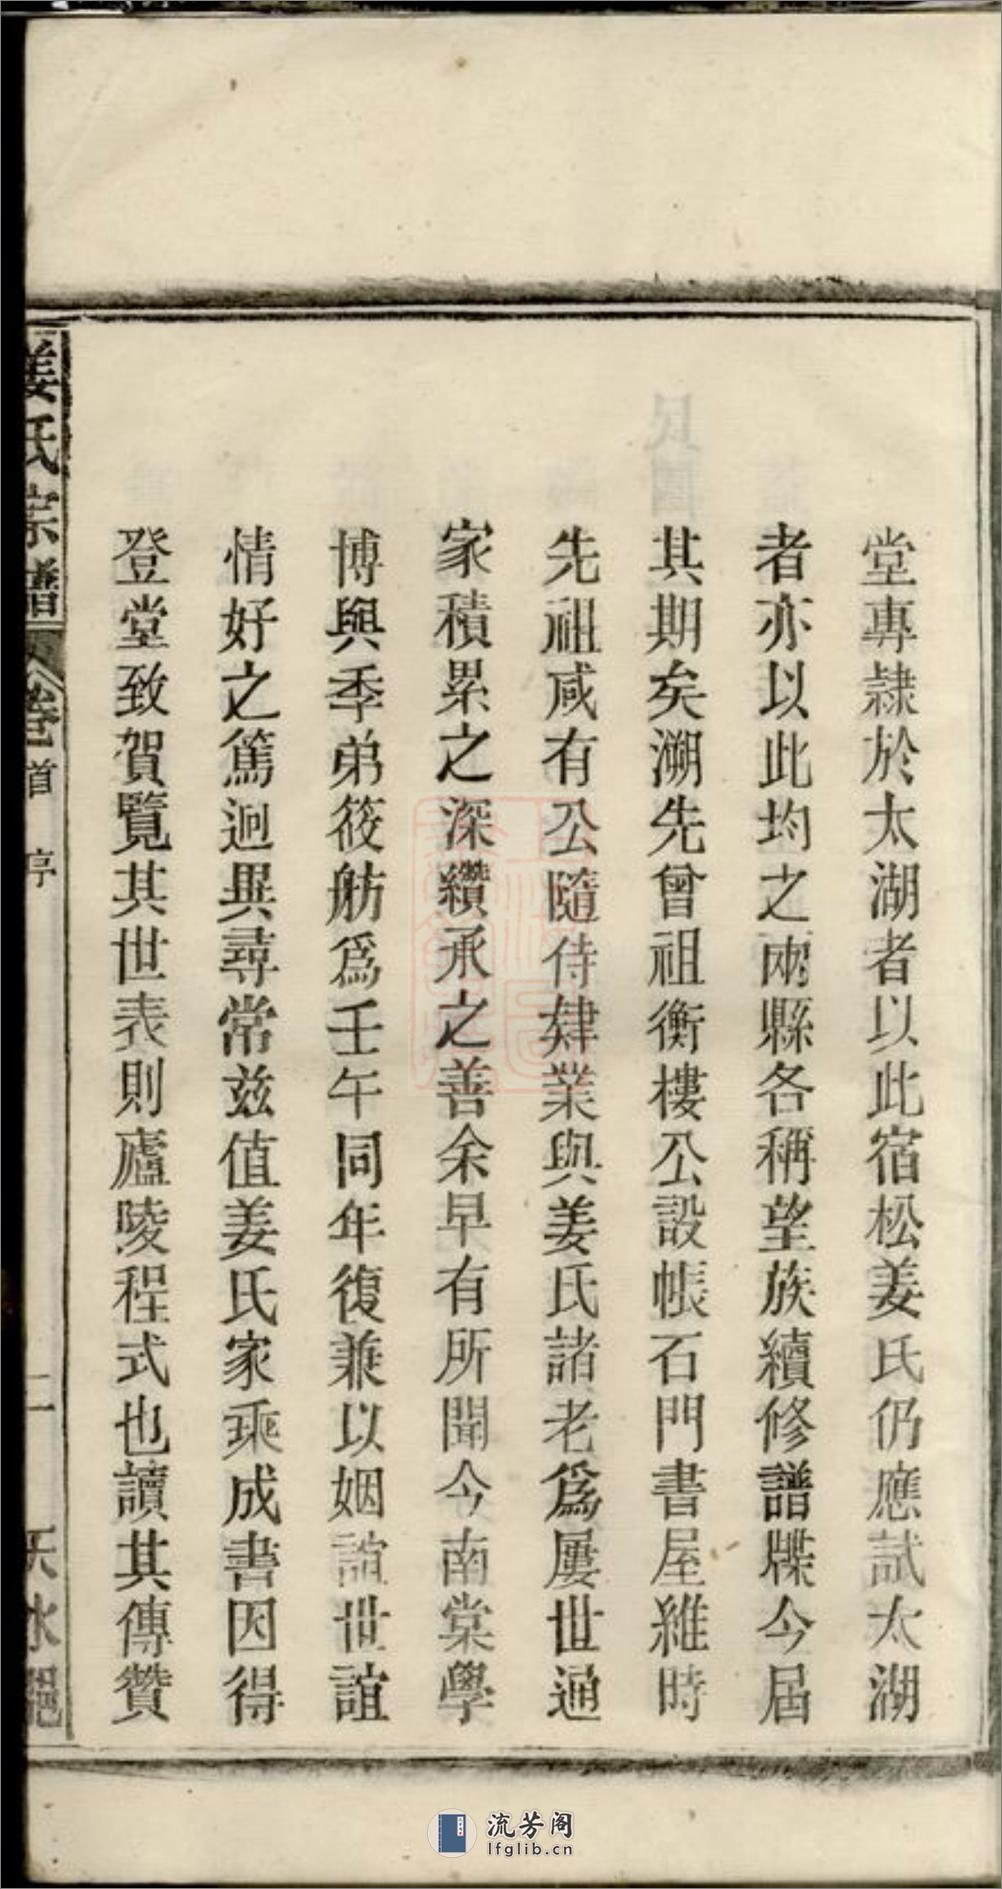 堂專隷於太湖者以此宿松姜氏仍應試太湖
者亦以此均之兩縣各稱望族續修譜牒今屆
其期矣溯先曾祖衡樓公設帳石門書屋維時
先祖咸有公隨侍肄業與姜氏諸老爲屢世通
家積累之深纘承之善余早有所聞今南棠學
博與季弟筱舫爲壬午同年復兼以姻誼世誼
情好之篤迥異尋常兹值姜氏家乘成書因得
登堂致賀覽其世表則廬陵程式也讀其傳贊
姜氏宗譜 卷首 序 二 天水
流芳阁
lfglib.cn